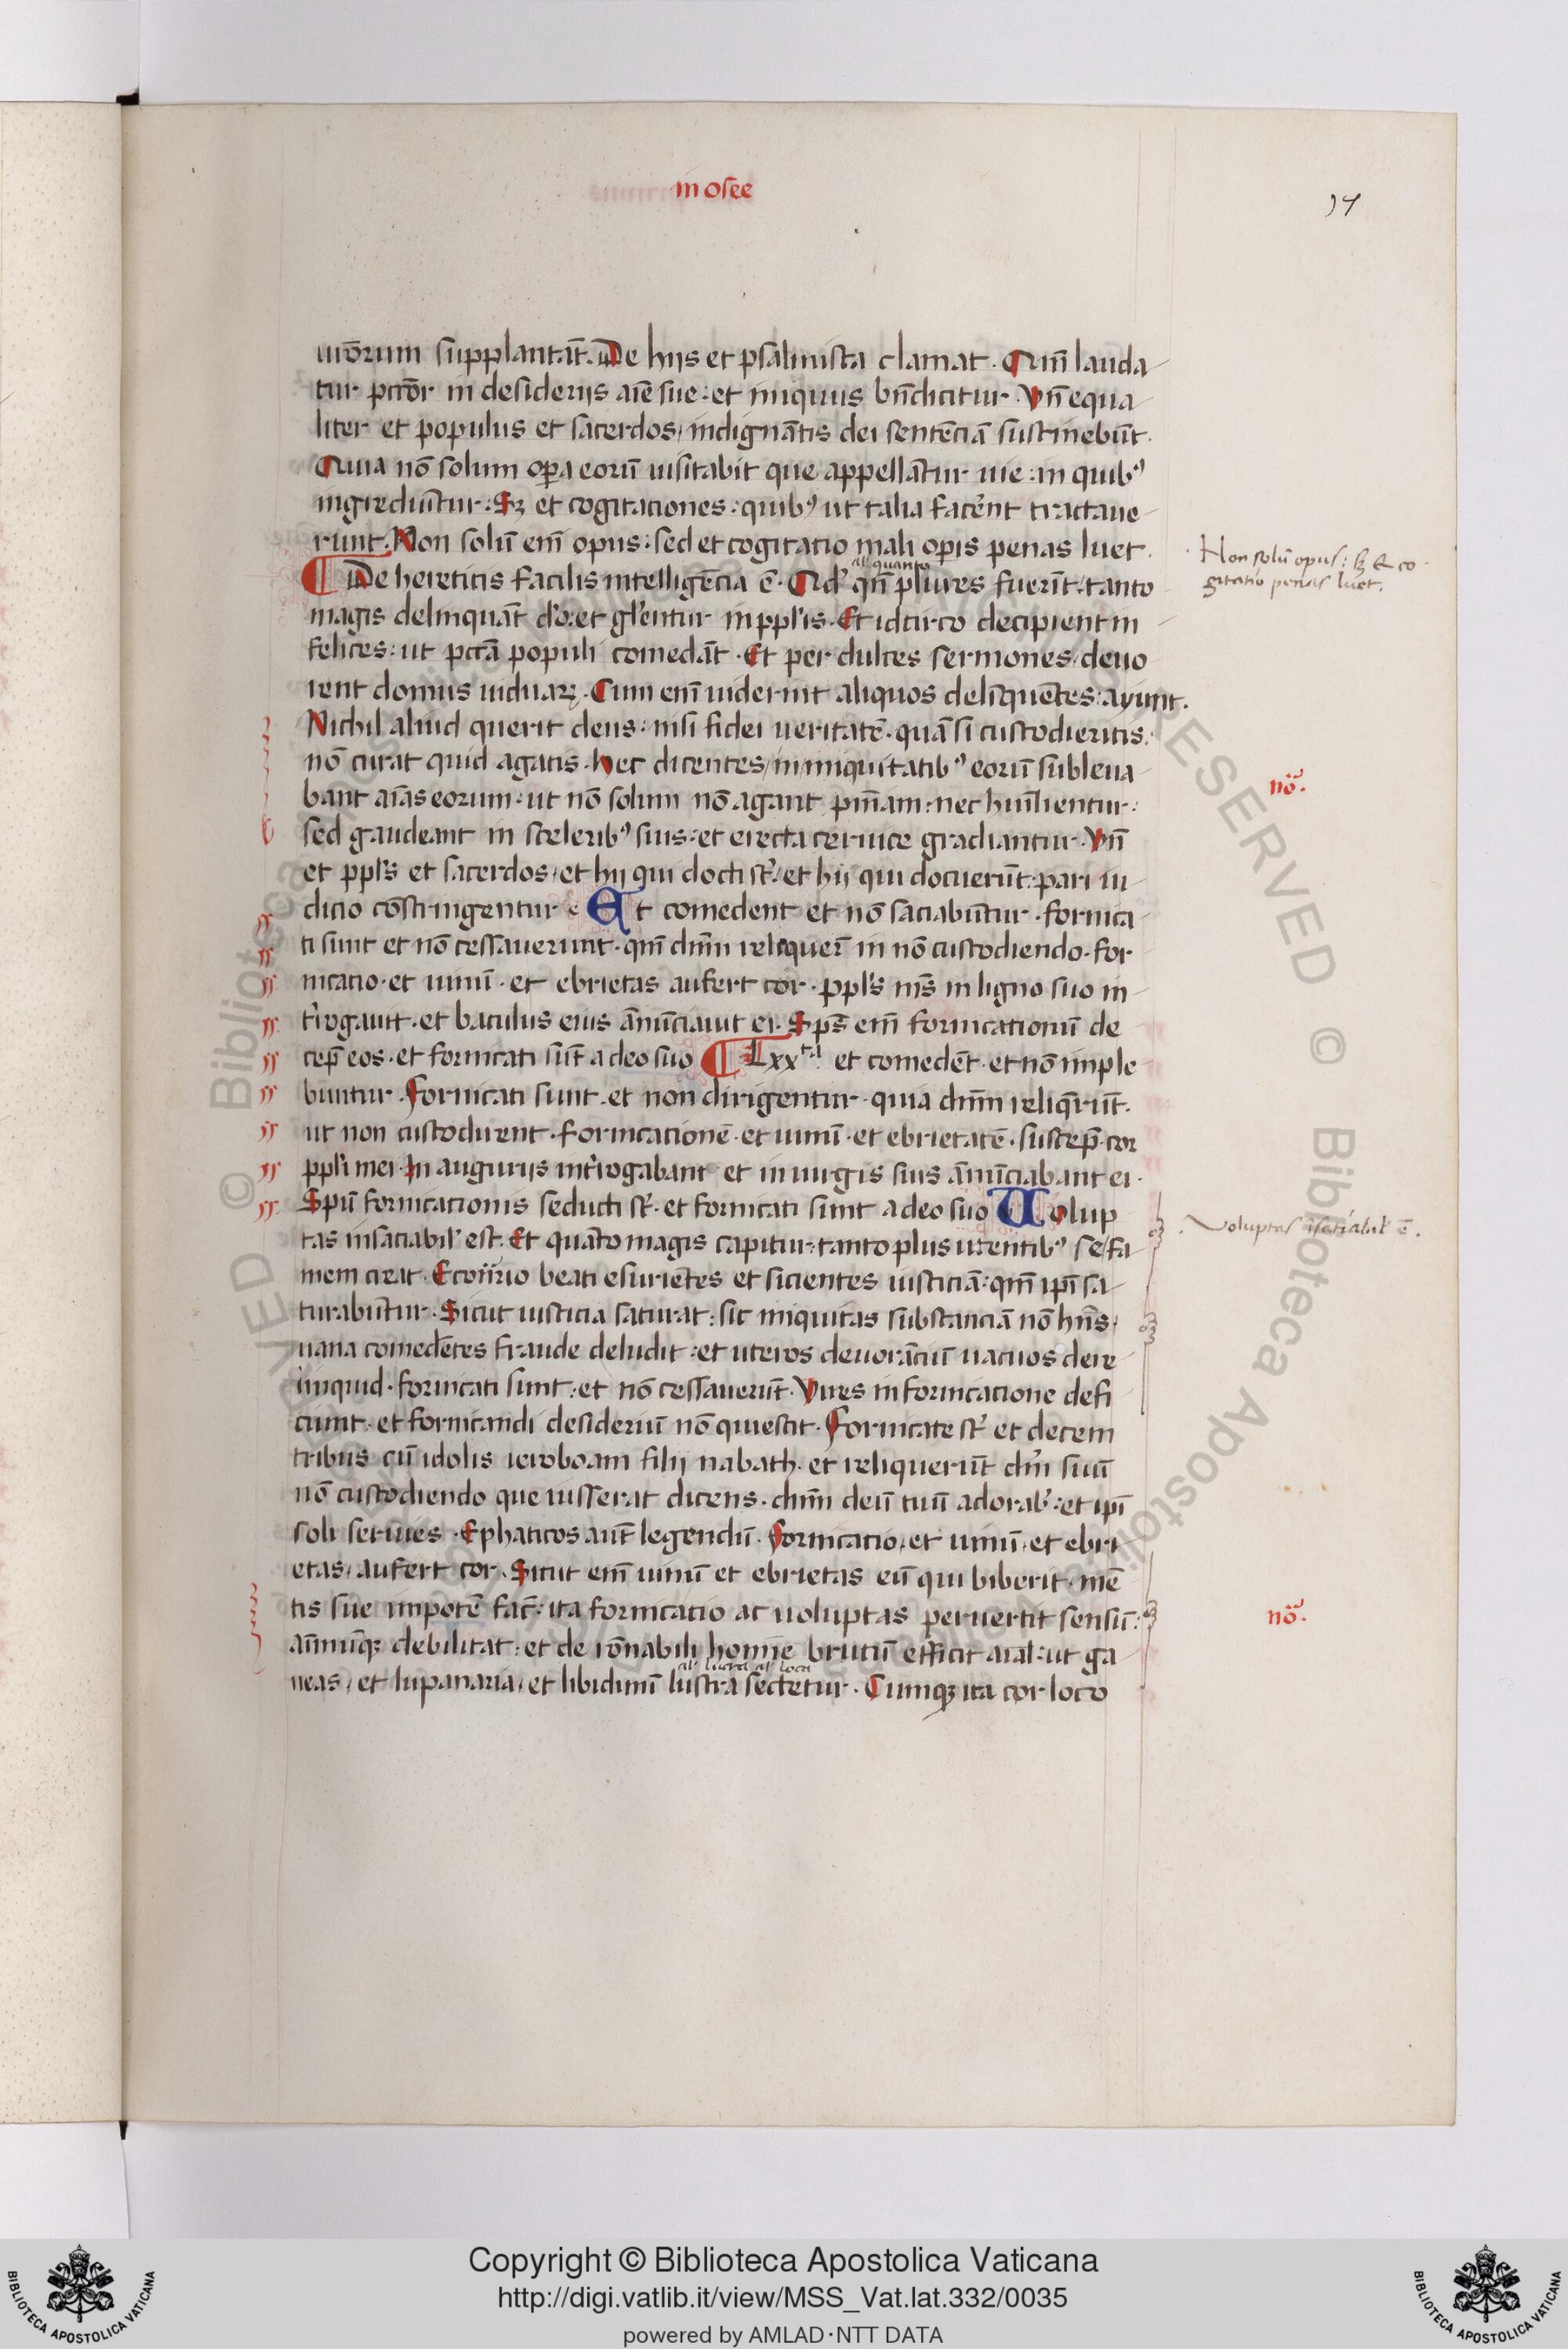 in osee
17
uiōrum supplantāt. De hijs et psalmista clamat. Qm̄ lauda
tur pctōr in desiderijs aīe sue: et iniquus bn̄dicitur. Vn̄ equa
liter et populus et sacerdos, indignātis dei sentēciā sustinebūt.
Quia nō solum opa eorū uisitabit que appellātur uie: in quibꝰ
ingrediūtur: Sꝫ et cogitaciones: quibꝰ ut talia facēnt tractaue
runt. Non solū em̄ opus: sed et cogitatio mali opis penas luet.
al' quanto
De heretitis facilis intelligēcia ē. Qd' qn̄ plures fuerīt: tanto
magis delinquāt d'o: et gl'entur in ppl'is. Et idcirco decipient in
felices: ut pctā populi comedāt. Et per dulces sermones, deuo
rent domus uiduaꝝ. Cum em̄ uiderint aliquos delīquētes: ayunt.
Nichil aliud querit deus: nisi fidei ueritatē. quā si custodieritis:
nō curat quid agatis. hec dicentes, in iniquitatibꝰ eorū subleua
bant aīas eorum: ut nō solum nō agant pnīam: nec humīlientur:
sed gaudeant in sceleribꝰ suis: et erecta ceruice gradiantur. Vn̄
et ppl's et sacerdos, et hij qui docti st̄: et hij qui docuerūt: pari iu
dicio cōstringentur. Et comedent et nō saciabūtur. fornica
ti sunt et nō cessauerunt. qm̄ dnm̄ reliquer̄ in nō custodiendo. for
nicatio. et uinū. et ebrietas aufert cor. ppl's ms̄ in ligno suo in
t'rogauit. et baculus eius ānūciauit ei. Sps̄ em̄ fornicationū de
cep̄ eos. et fornicati sūt a deo suo Lxxᵗᵃ. et comedēt. et nō imple
buntur. Fornicati sunt. et non dirigentur. quia dnm̄ reliq̄rūt.
ut non custodirent. fornicationē. et uinū. et ebrietatē. suscep̄ cor
ppl'i mei. In augurijs int'rogabant. et in uirgis suis ānūciabant ei.
Spū fornicationis seducti st̄. et fornicati sunt a deo suo Volup
tas insaciabil' est. Et quāto magis capitur: tanto plus utentibꝰ se, fa
mem creat. Ecōn̄rio beati esuriētes et sicientes iusticiā: qm̄ ipī sa
turabūtur. Sicut iusticia saturat: sic iniquitas substanciā nō hn̄s,
uana comedētes fraude deludit: et uteros deuorāciū uacuos dere
linquid. fornicati sunt: et nō cessauerūt. Vires in fornicacione defi
ciunt. et fornicandi desideriū nō quiescit. Fornicate st̄ et decem
tribus cū idolis ieroboam filij nabath. et reliquerūt dn̄i suū
nō custodiendo que iusserat dicens. dnm̄ deū tuū adorab': et ipī
soli seruies. Ephaticos aūt legendū. Fornicatio, et uinū, et ebri
etas, aufert cor. Sicut em̄ uinū et ebrietas eū qui biberit, mē
tis sue impotē fac̄: ita fornicatio ac uoluptas peruertit sensū:
aīmūqꝫ debilitat: et de rōnabili homīe brutū efficit aīal: ut ga
al' lucra al' loca
neas, et lupanaria, et libidinū lustra sectetur. Cumqꝫ ita cor loco
Non solū opus: sꝫ & co
gitatio penas luet.
nō.
Voluptas īsatiabil' ē.
nō.
Copyright © Biblioteca Apostolica Vaticana
http://digi.vatlib.it/view/MSS_Vat.lat.332/0035
powered by AMLAD·NTT DATA
BIBLIOTECA APOSTOLICA VATICANA
BIBLIOTECA APOSTOLICA VATICANA